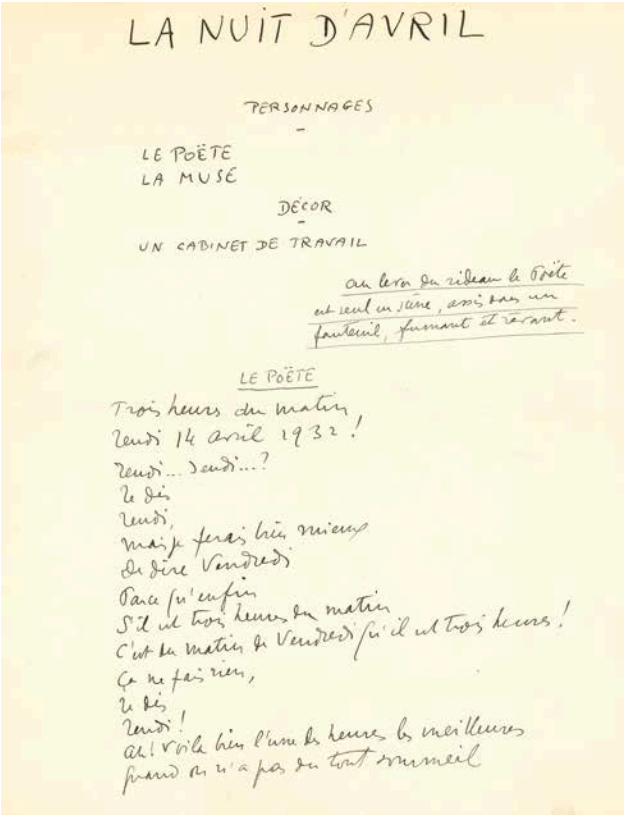 LA NUIT D'AVRIL
PERSONNAGES
-
LE POËTE
LA MUSE
DÉCOR
-
UN CABINET DE TRAVAIL
au lever du rideau le Poëte
est seul en scène, assis dans un
fauteuil, fumant et rêvant.
LE POËTE
Trois heures du matin,
Jeudi 14 avril 1932 !
Jeudi... Jeudi...?
Je dis
Jeudi,
mais je ferais bien mieux
de dire Vendredi
Parce qu'enfin
S'il est trois heures du matin
C'est du matin de Vendredi qu'il est trois heures !
Ça ne fait rien,
Je dis
Jeudi !
Ah ! Voilà bien l'une des heures les meilleures
quand on n'a pas du tout sommeil